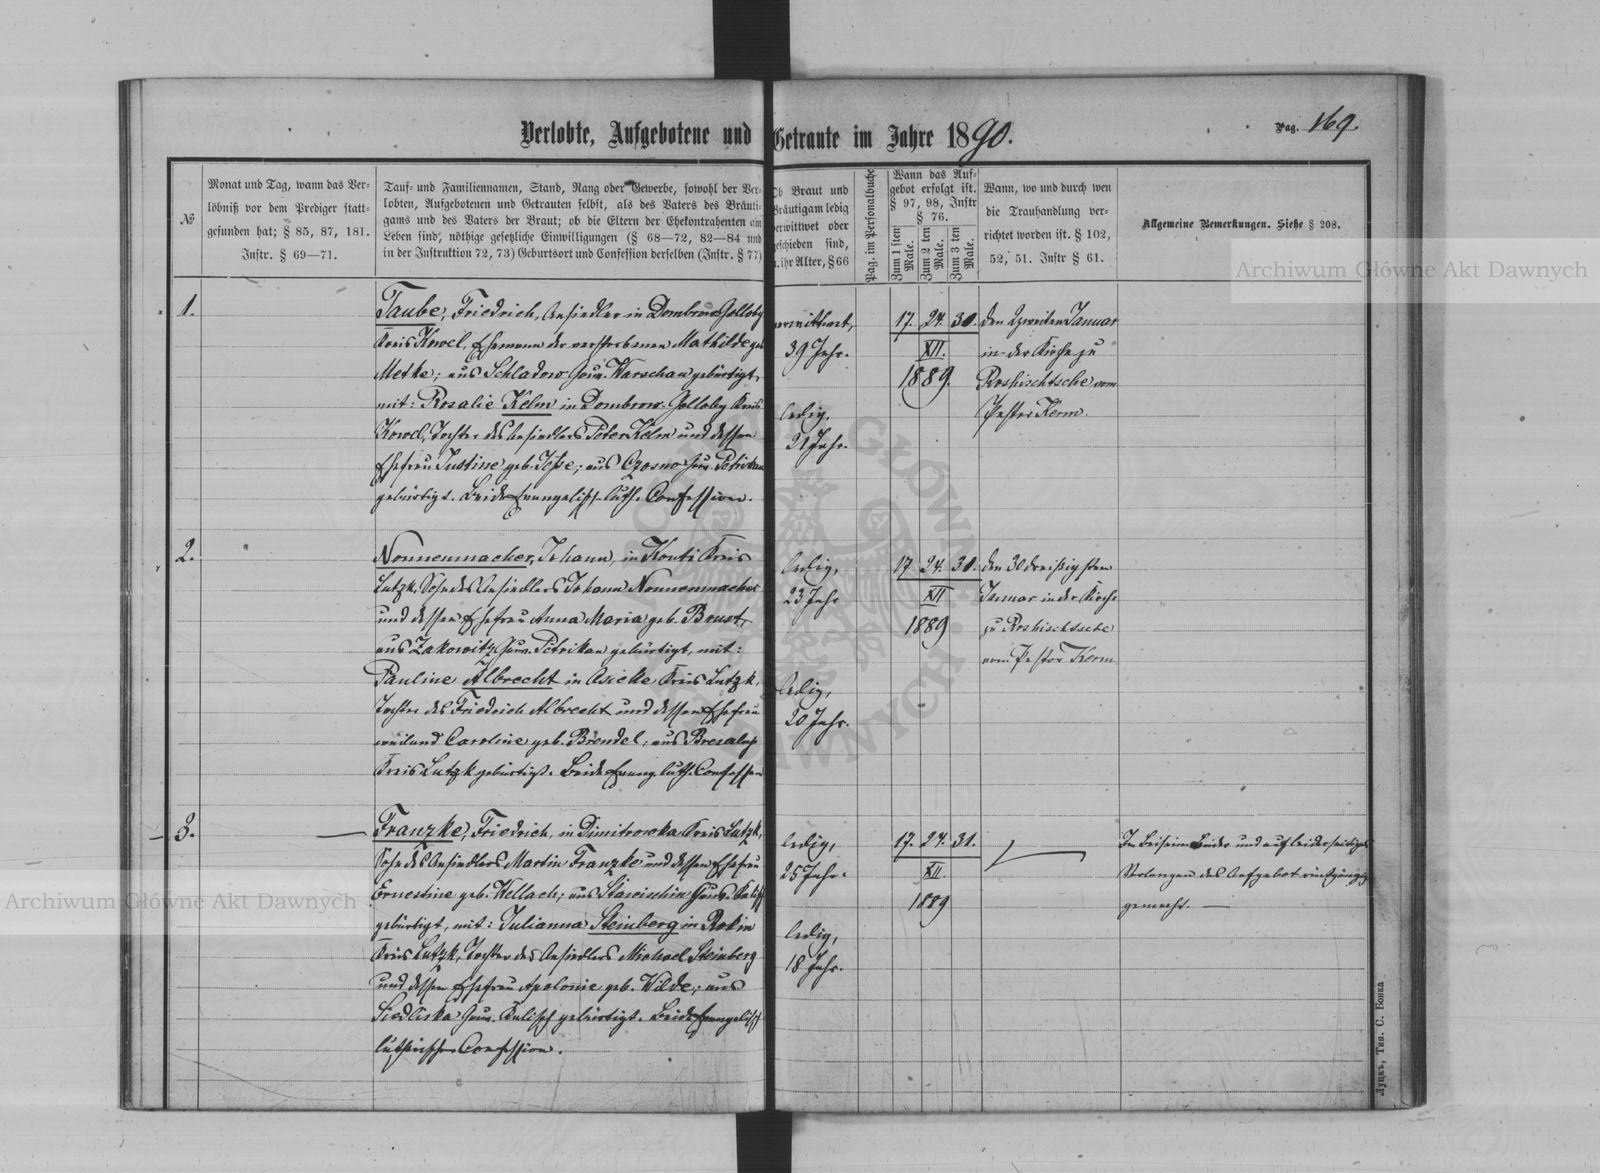 Verlobte, Aufgebotene und Getraute im Jahre 1890.
Pag. 169.
№
Monat und Tag, wann das Ver-
löbniß vor dem Prediger statt-
gefunden hat; § 85, 87, 181.
Instr. § 69—71.
Tauf- und Familiennamen, Stand, Rang oder Gewerbe, sowohl der Ver-
lobten, Aufgebotenen und Getrauten selbst, als des Vaters des Bräuti-
gams und des Vaters der Braut; ob die Eltern der Ehekontrahenten am
Leben sind, nöthige gesetzliche Einwilligungen (§ 68—72, 82—84 und
in der Instruktion 72, 73) Geburtsort und Confession derselben (Instr. § 77)
Ob Braut und
Bräutigam ledig
verwittwet oder
geschieden sind,
u. ihr Alter, § 66
Pag. im Personalbuche
Wann das Auf-
gebot erfolgt ist.
§ 97, 98, Instr
§ 76.
Zum 1 sten Male.
Zum 2 ten Male.
Zum 3 ten Male.
Wann, wo und durch wen
die Trauhandlung ver-
richtet worden ist. § 102,
52, 51. Instr § 61.
Allgemeine Bemerkungen. Siehe § 208.
1.
Taube, Friedrich, Ansiedler in Dombrowo Golloby
Kreis Kowel, Ehemann der verstorbenen Mathilde geb.
Metke; aus Schladowo Gouv. Warschau gebürtigt,
mit: Rosalie Kelm in Dombrowo Golloby Kreis
Kowel, Tochter des Ansiedlers Peter Kelm und dessen
Ehefrau Justine geb. ; aus Gouv. Petrikau
gebürtigt. Beide Evangelisch-luth. Confession.
verwittwet,
39 Jahr.
ledig,
21 Jahr.
17. 24. 31.
XII.
1889.
den 2 zweiten Januar
in der Kirche zu
Roshischtsche vom
Pastor Kerm.
2.
Nonnenmacher, Johann, in Konti Kreis
Lutzk, Sohn des Ansiedlers Johann Nonnenmacher
und dessen Ehefrau Anna Maria geb. Brust,
aus Zakowitz Gouv. Petrikau gebürtigt, mit:
Pauline Albrecht in Kreis Lutzk,
Tochter des Friedrich Albrecht und dessen Ehefrau
weiland Caroline geb. Brendel; aus
Kreis Lutzk gebürtigt. Beide Evang. luth. Confession
ledig,
23 Jahr
ledig,
20 Jahr.
17. 24. 31.
XII
1889
den 30 dreißigsten
Januar in der Kirche
zu Roshischtsche
vom Pastor Kerm
3.
Franzke, Friedrich, in Dimitrowka Kreis Lutzk,
Sohn des Ansiedlers Martin Franzke und dessen Ehefrau
Ernestine geb. Wellach; aus Stawischin Gouv. Kalisch
gebürtigt, mit: Julianna Steinberg in Rokin
Kreis Lutzk, Tochter des Ansiedlers Michael Steinberg
und dessen Ehefrau Apolonie geb. Wilde; aus
Siedliska Gouv. Kalisch gebürtigt. Beide Evangelisch
lutherischer Confession.
ledig,
25 Jahr.
ledig,
18 Jahr.
17. 24. 31.
XII.
1889
Im Beisein Beider und auf beiderseitiges
Verlangen das Aufgebot rückgängig
gemacht. —
Луцкъ, Тип. С. Бонка
Archiwum Główne Akt Dawnych
Archiwum Główne Akt Dawnych